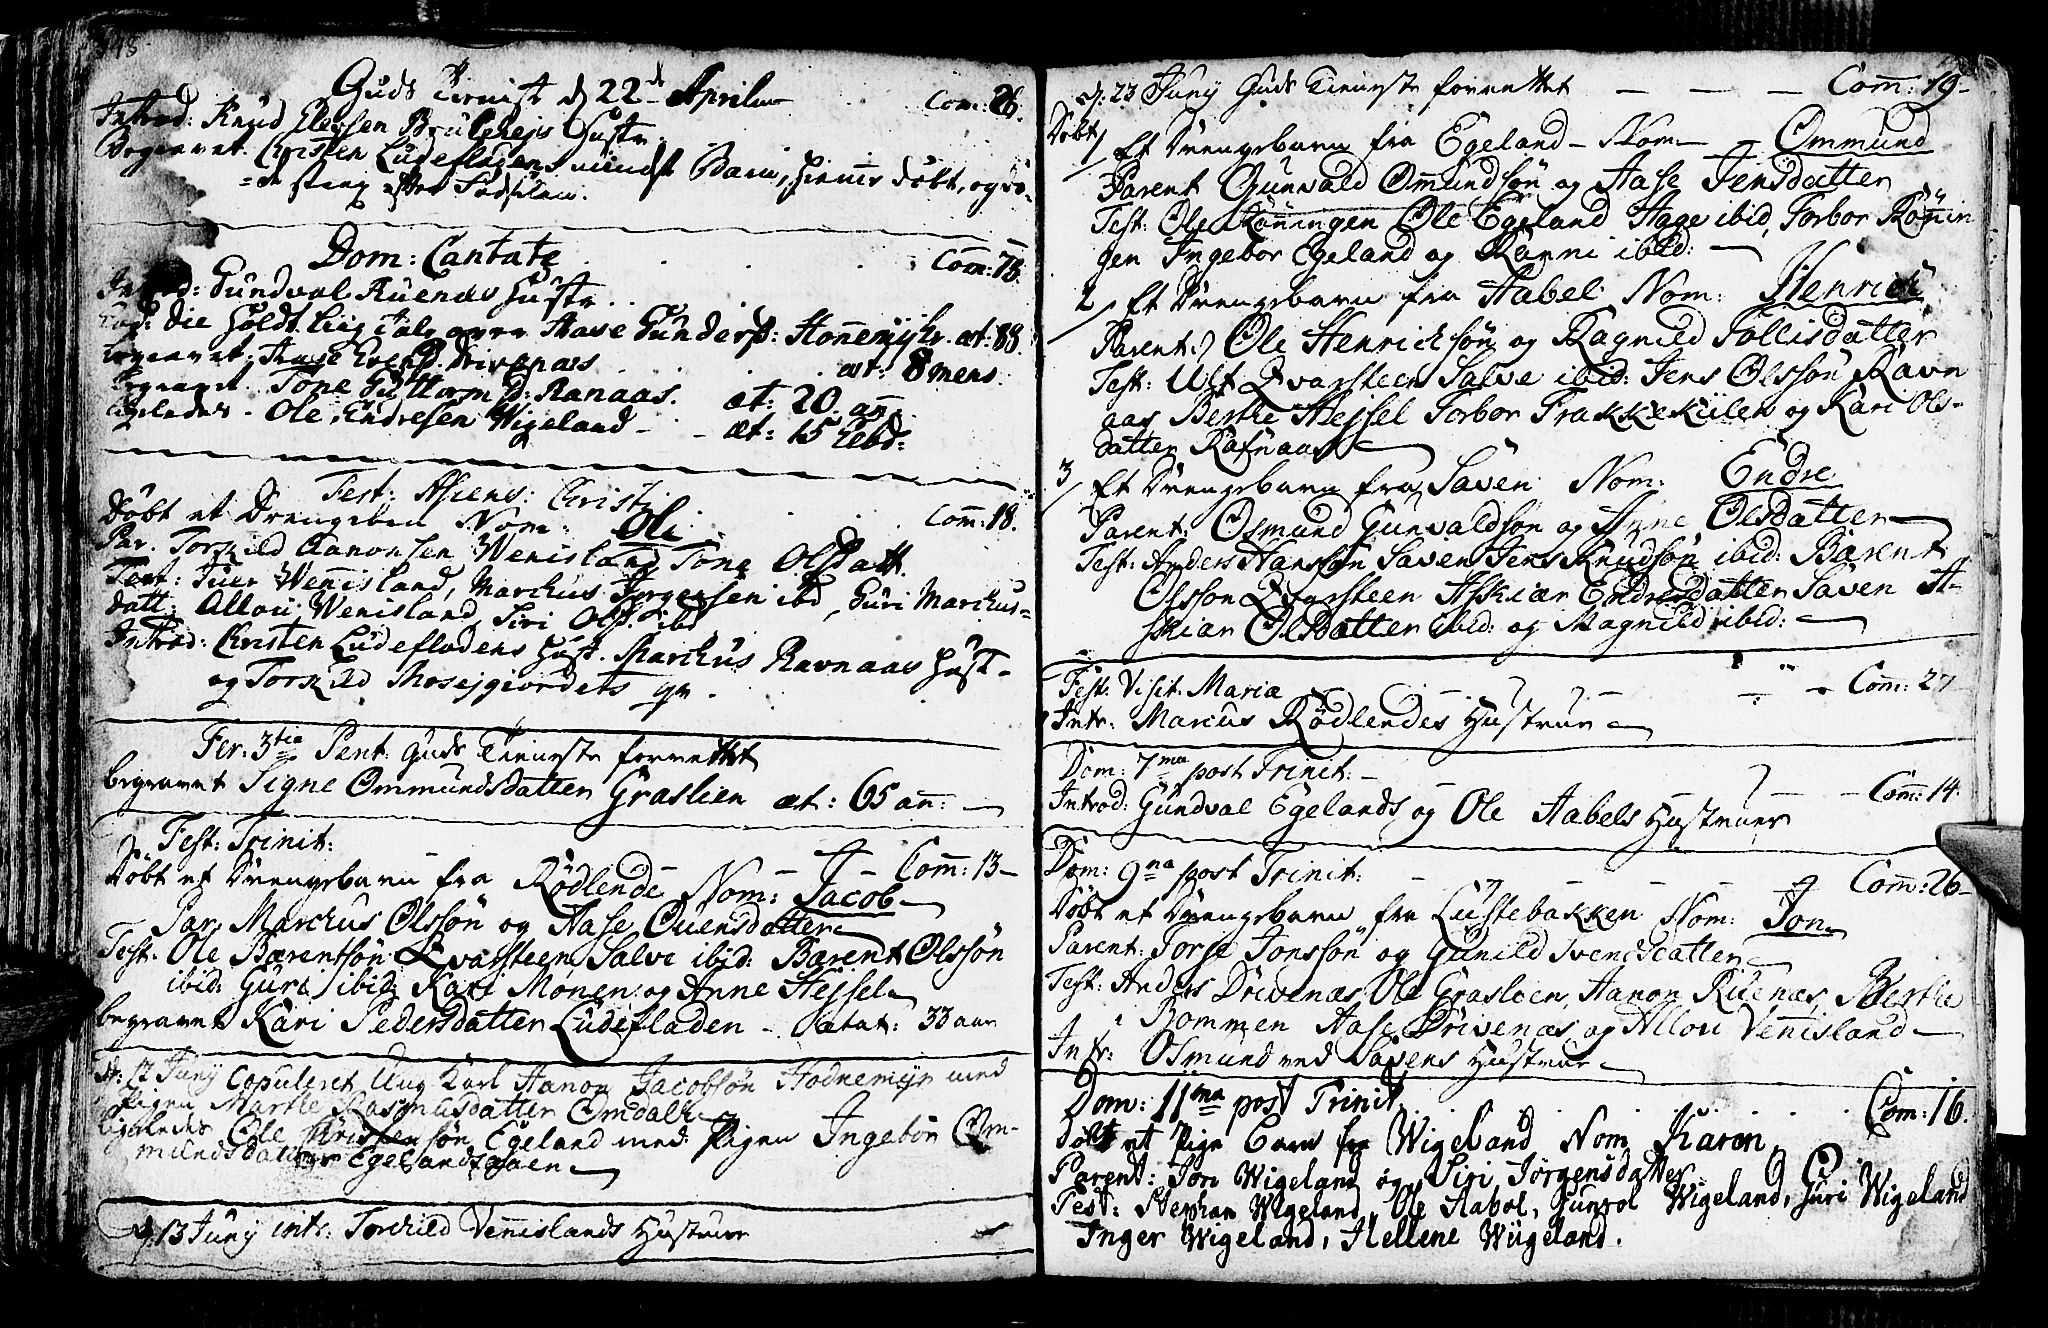 148
Guds Tienist d 22de April Com: 26.
Introd: Knud Brulshejs Hustr.
Begravet. Christen Ludefladens mindst Barn, hiemme döbt, og dö-
de strax efter Daaben.
Dom: Cantate Com: 75.
Introd: Gundval Ruenæs Hustr.
Lige Tale over Aase Gundersd: Honnemyhr. æt: 88.
begravet. Aase Drivenæs æt: 8 mens.
begravet. Tone Guttormsd: Ranaas. æt: 20 añ
ligeledes - Ole Endresen Wigeland - - æt: 15 Ebd:
Fest: Ascens: Christi Com: 18.
Döbt et Drengebarn Nom: Ole
Par. Torkild Aanonsen Wenisland Tone Olsdatt.
Test: Iver Wenisland, Marchus Jörgensen ibd, Guri Marchus-
datt: Allou Wenisland, Siri Olsd. ibd
Introd: Christen Ludefladens Hust. Marchus Ravnaas Hust-
og Torkild Mosejgiordets qv.
Fer. 3tia Pent: Guds Tieneste forrettet
begravet Signe Ommundsdatter Graslien æt: 65 añ:
Fest: Trinit: Com: 13
Döbt et Drengebarn fra Rödlende Nom: Jacob
Par: Marchus Olssön og Aase Ouensdatter
Test: Ole Bærentsön Qvarsteen Salve ibid: Bærent Olssön
ibid: Guri ibid: Kari Monen og Anne Hejsel
begravet Kari Pedersdatter Ludefladen - ætat: 33 aar
d: 12 Junÿ Copuleret Ung Karl Aanon Jacobsön Hodnemÿr med
Pigen Marthe Rasmusdatter Omdal
ligeledes Ole Christensön Egeland med Pigen Ingebor Om-
mundsdatter Egelandsaaen
d: 13 Junÿ intr: Torchild Vennislands Hustrue
d: 23 Junÿ Guds Tieneste forrettet Com: 19
Döbt 1/ Et Drengebarn fra Egeland - Nom Ommund
Parent Gunvald Omundsön og Aase Jensdatter
Test: Ole Rönningen Ole Egeland Aage ibid, Torbor Rönin
gen Ingebor Egeland og Ranni ibid:
2/ Et Drengebarn fra Aabel Nom: Henrich
Parent: Ole Henrichsön og Ragnild Tollisdatter
Test: Ulf Qvarsteen Salve ibid: Jens Olssön Ravn
aas Berthe Hejsel Torbor Frakkekiilen og Kari Ols-
datter Rafnaas
3/ Et Drengebarn fra Saven Nom: Endre
Parent: Osmund Gunvaldsön og Anne Olsdatter
Test: Anders Hanssön Saven Jens Knudsön ibid: Bærent
Olsson Qvarsteen Askier Endresdatter Saven A-
skiær Olsdatter ibid: og Magnild ibid:
Fest. Visit. Mariæ Com: 27
Intr: Marcus Rödlendes Hustrue
Dom: 7ma post Trinit: Com: 14.
Introd: Gundval Egelands og Ole Aabels Hustruer
Dom: 9na post Trinit: Com: 26
Döbt et Drengebarn fra Lustebakken Nom: Jon
Parent: Torje Jonssön og Gunild Svendsdatter
Test: Anders Drivenæs, Ole Grasloen, Aanon Ruenæs, Berthe
Bommen Aase Drivenæs og Allou Vennisland
Intr: Osmund ved Savens Hustrue
Dom: 11ma post Trinit. Com: 16.
Döbt et Pige Barn fra Wigeland Nom Karen
Parent: Jörn Wigeland og Siri Jörgensdatter
Test: Stephan Wigeland, Ole Aabol, Gunvol Wigeland, Guri Wigeland
Inger Wigeland, Hellene Wiigeland.